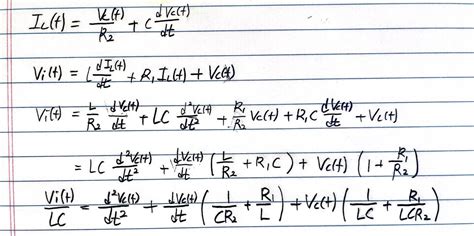 I_L(t) = V_c(t)/R_2 + C dV_c(t)/dt
V_i(t) = L dI_L(t)/dt + R_1 I_L(t) + V_c(t)
V_i(t) = L/R_2 dV_c(t)/dt + LC d²V_c(t)/dt² + R_1/R_2 V_c(t) + R_1 C dV_c(t)/dt + V_c(t)
= LC d²V_c(t)/dt² + dV_c(t)/dt (L/R_2 + R_1 C) + V_c(t) (1 + R_1/R_2)
V_i(t)/LC = d²V_c(t)/dt² + dV_c(t)/dt (1/CR_2 + R_1/L) + V_c(t) (1/LC + R_1/LCR_2)